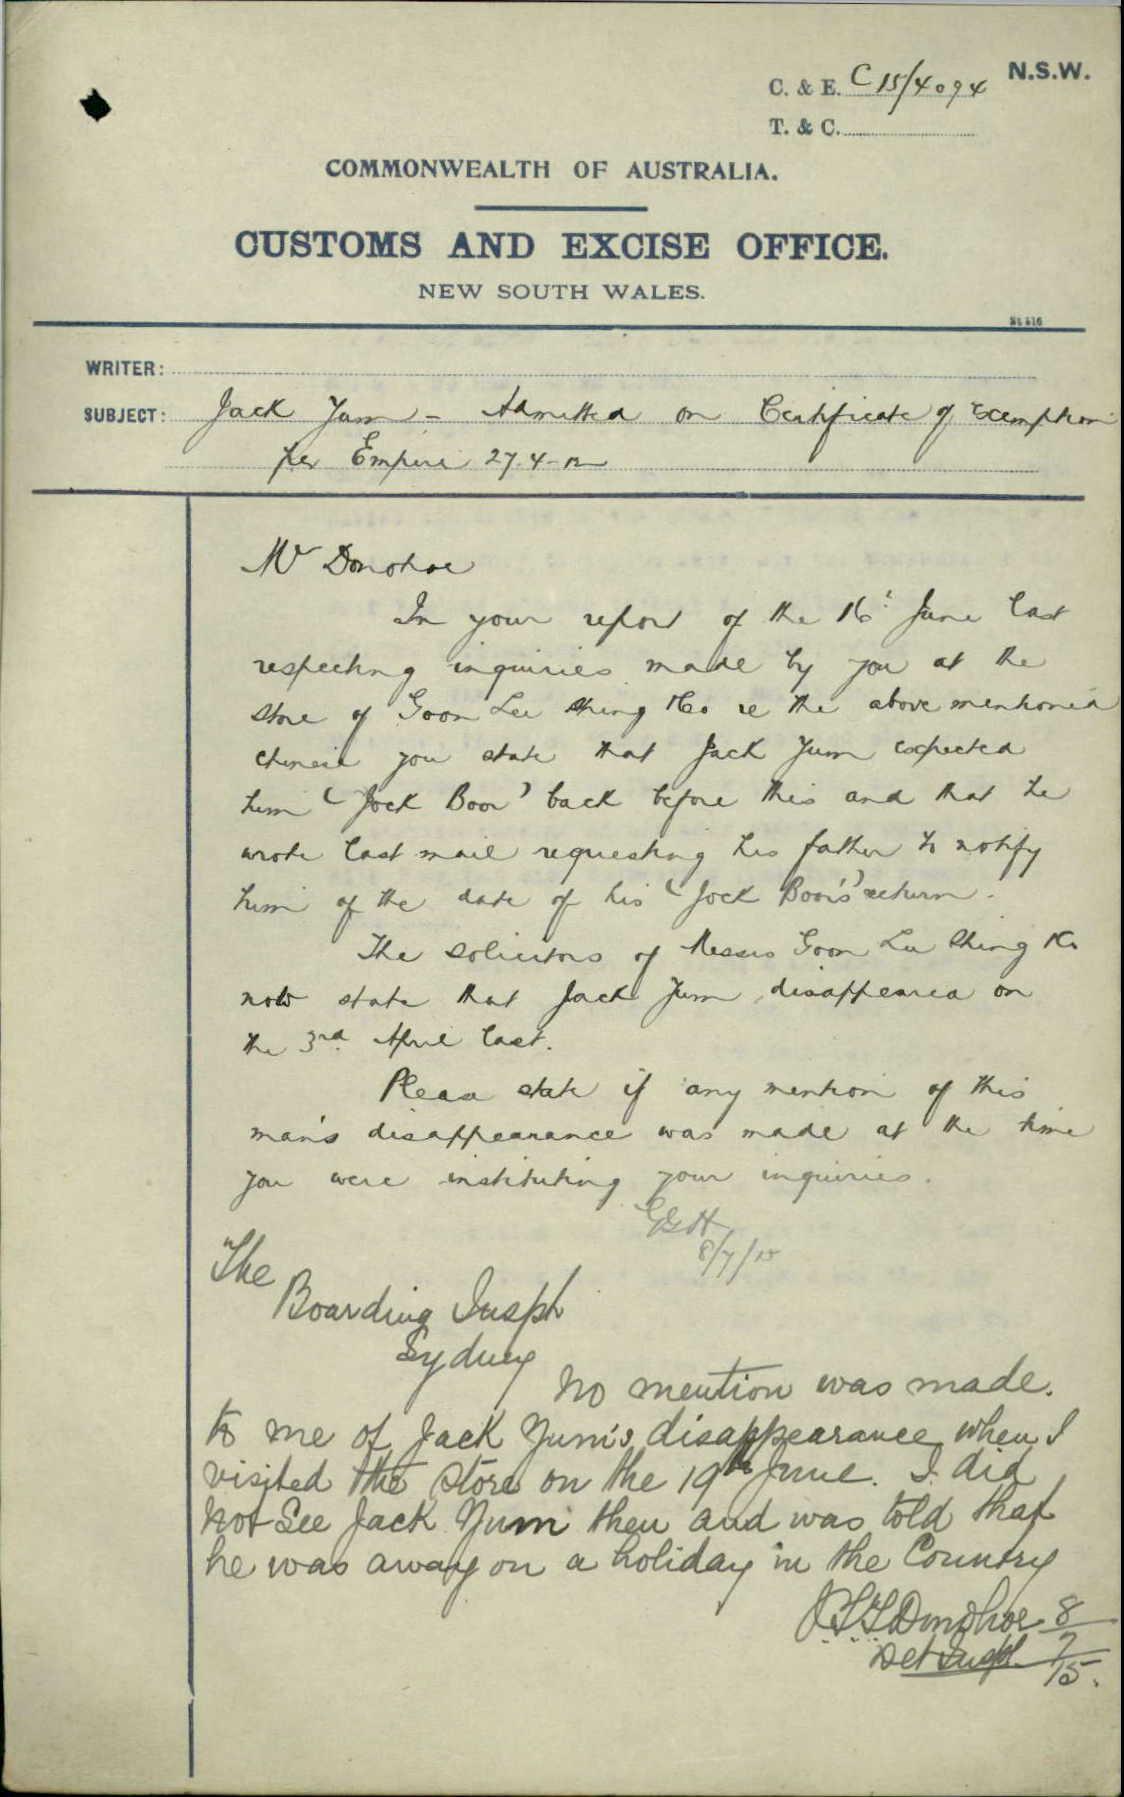 N.S.W.
C. & E. C 15/4094
T. & C.
COMMONWEALTH OF AUSTRALIA.
CUSTOMS AND EXCISE OFFICE.
NEW SOUTH WALES.
WRITER:
SUBJECT: Jack Yum - Admitted on Certificate of Exemption
per Empire 27.4-12
Mr Donohoe
In your report of the 16th June last
respecting inquiries made by you at the
store of Goon Lee Shing & Co re the above mentioned
Chinese you state that Jack Yum expected
him (Jock Boor) back before this and that he
wrote last mail requesting his father to notify
him of the date of his (Jock Boor's) return.
The solicitors of Messrs Goon Lee Shing & Co
now state that Jack Yum disappeared on
the 3rd April last.
Please state if any mention of this
man's disappearance was made at the time
you were instituting your inquiries.
8/7/15
The
Boarding Inspr
Sydney
No mention was made.
to me of Jack Yum's disappearance when I
visited the store on the 19th June. I did
not See Jack Yum then and was told that
he was away on a holiday in the Country
Donohoe 8/7/15.
Det Inspr